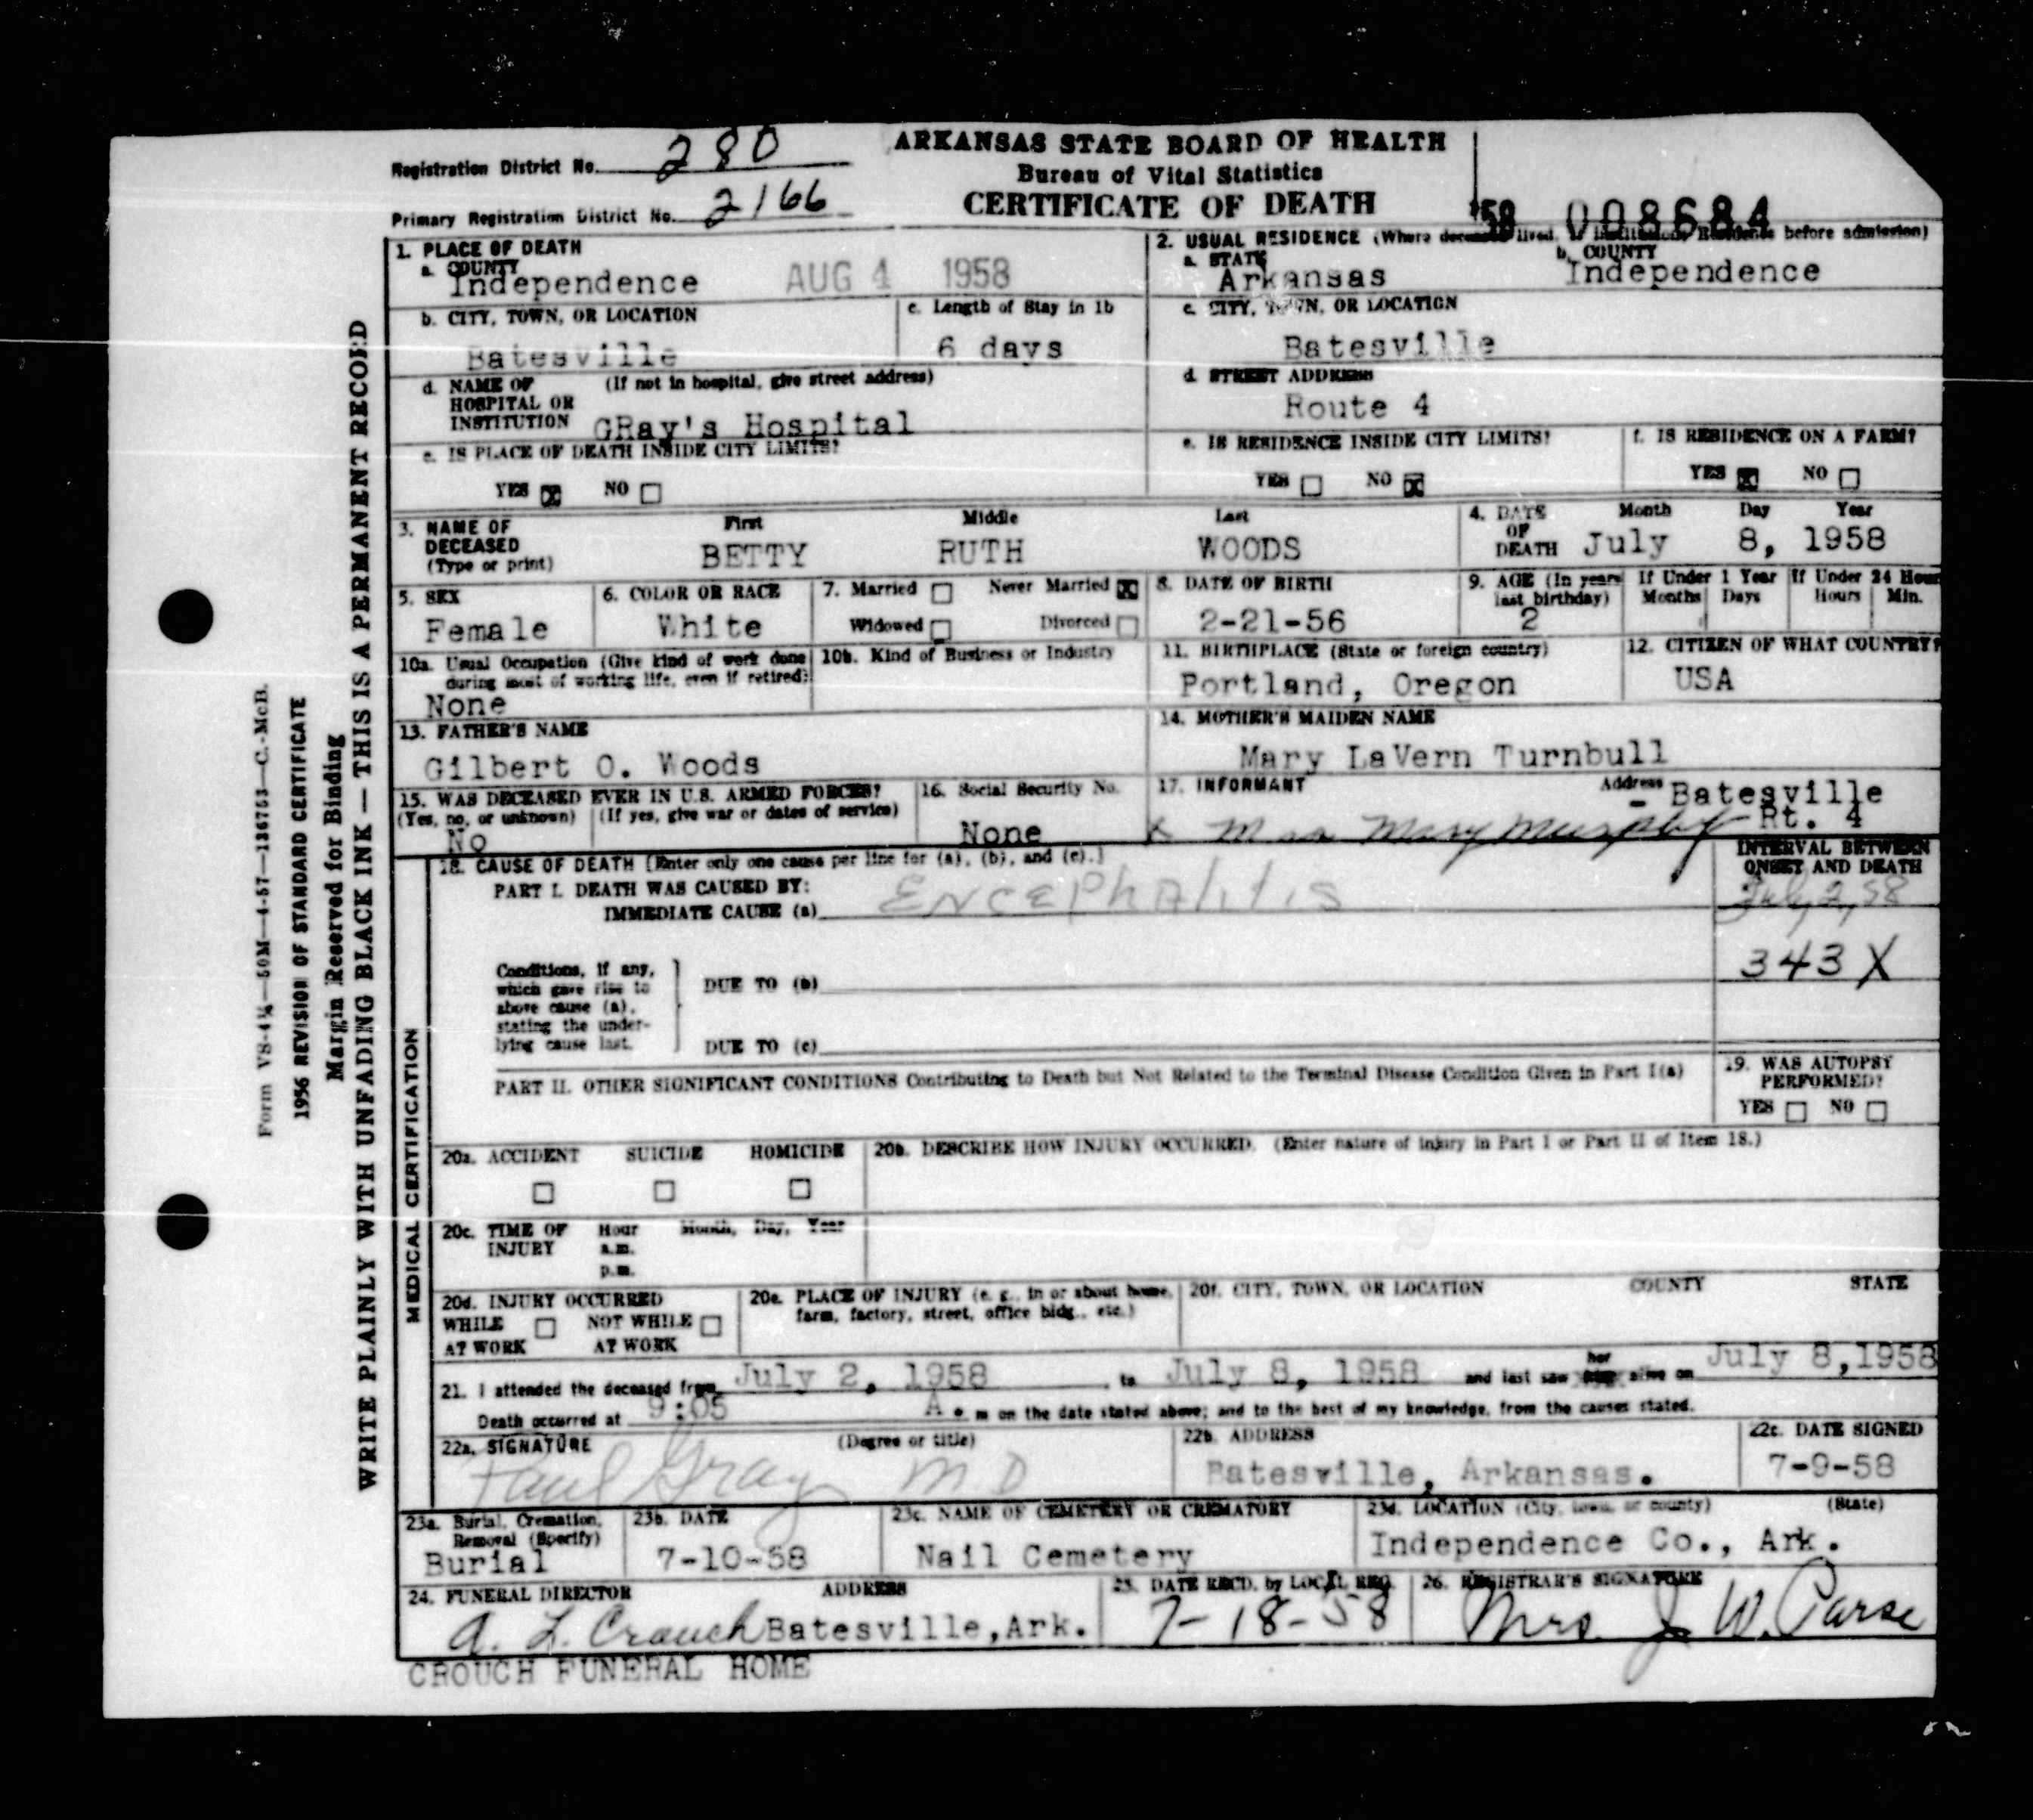 Registration District No. 280
Primary Registration District No. 2166
ARKANSAS STATE BOARD OF HEALTH
Bureau of Vital Statistics
CERTIFICATE OF DEATH
'58 008684
1. PLACE OF DEATH
a. COUNTY
Independence AUG 4 1958
2. USUAL RESIDENCE (Where deceased lived. If institution: Residence before admission)
a. STATE b. COUNTY
Arkansas Independence
b. CITY, TOWN, OR LOCATION c. Length of Stay in 1b
Batesville 6 days
c. CITY, TOWN, OR LOCATION
Batesville
d. NAME OF (If not in hospital, give street address)
HOSPITAL OR
INSTITUTION GRay's Hospital
d. STREET ADDRESS
Route 4
e. IS PLACE OF DEATH INSIDE CITY LIMITS?
YES X NO
e. IS RESIDENCE INSIDE CITY LIMITS?
YES NO X
f. IS RESIDENCE ON A FARM?
YES X NO
3. NAME OF First Middle Last
DECEASED BETTY RUTH WOODS
(Type or print)
4. DATE Month Day Year
OF
DEATH July 8, 1958
5. SEX
Female
6. COLOR OR RACE
White
7. Married Never Married X
Widowed Divorced
8. DATE OF BIRTH
2-21-56
9. AGE (In years last birthday)
2
If Under 1 Year
Months Days
If Under 24 Hour
Hours Min.
10a. Usual Occupation (Give kind of work done
during most of working life, even if retired)
None
10b. Kind of Business or Industry
11. BIRTHPLACE (State or foreign country)
Portland, Oregon
12. CITIZEN OF WHAT COUNTRY?
USA
13. FATHER'S NAME
Gilbert O. Woods
14. MOTHER'S MAIDEN NAME
Mary LaVern Turnbull
15. WAS DECEASED EVER IN U.S. ARMED FORCES?
(Yes, no, or unknown) (If yes, give war or dates of service)
No
16. Social Security No.
None
17. INFORMANT Address - Batesville
x Mrs Mary Murphy Rt. 4
18. CAUSE OF DEATH [Enter only one cause per line for (a), (b), and (c).]
INTERVAL BETWEEN
ONSET AND DEATH
PART I. DEATH WAS CAUSED BY:
IMMEDIATE CAUSE (a) Encephalitis July 2, 58
343 X
Conditions, if any,
which gave rise to
above cause (a),
stating the under-
lying cause last.
DUE TO (b)
DUE TO (c)
PART II. OTHER SIGNIFICANT CONDITIONS Contributing to Death but Not Related to the Terminal Disease Condition Given in Part I(a)
19. WAS AUTOPSY
PERFORMED?
YES NO
20a. ACCIDENT SUICIDE HOMICIDE
20b. DESCRIBE HOW INJURY OCCURRED. (Enter nature of injury in Part I or Part II of Item 18.)
20c. TIME OF Hour Month, Day, Year
INJURY a.m.
p.m.
20d. INJURY OCCURRED
WHILE NOT WHILE
AT WORK AT WORK
20e. PLACE OF INJURY (e. g., in or about home,
farm, factory, street, office bldg., etc.)
20f. CITY, TOWN, OR LOCATION COUNTY STATE
21. I attended the deceased from July 2, 1958 to July 8, 1958 and last saw her alive on July 8, 1958
Death occurred at 9:05 A. m on the date stated above; and to the best of my knowledge, from the causes stated.
22a. SIGNATURE (Degree or title)
Paul Gray M D
22b. ADDRESS
Batesville, Arkansas.
22c. DATE SIGNED
7-9-58
23a. Burial, Cremation,
Removal (Specify)
Burial
23b. DATE
7-10-58
23c. NAME OF CEMETERY OR CREMATORY
Nail Cemetery
23d. LOCATION (City, town, or county) (State)
Independence Co., Ark.
24. FUNERAL DIRECTOR ADDRESS
A. L. Crouch Batesville, Ark.
25. DATE RECD. by LOCAL REG.
7-18-58
26. REGISTRAR'S SIGNATURE
Mrs. J. W. Parse
CROUCH FUNERAL HOME
MEDICAL CERTIFICATION
WRITE PLAINLY WITH UNFADING BLACK INK — THIS IS A PERMANENT RECORD
Margin Reserved for Binding
1956 REVISION OF STANDARD CERTIFICATE
Form VS-4¼—50M—4-57—136753—C.-McB.